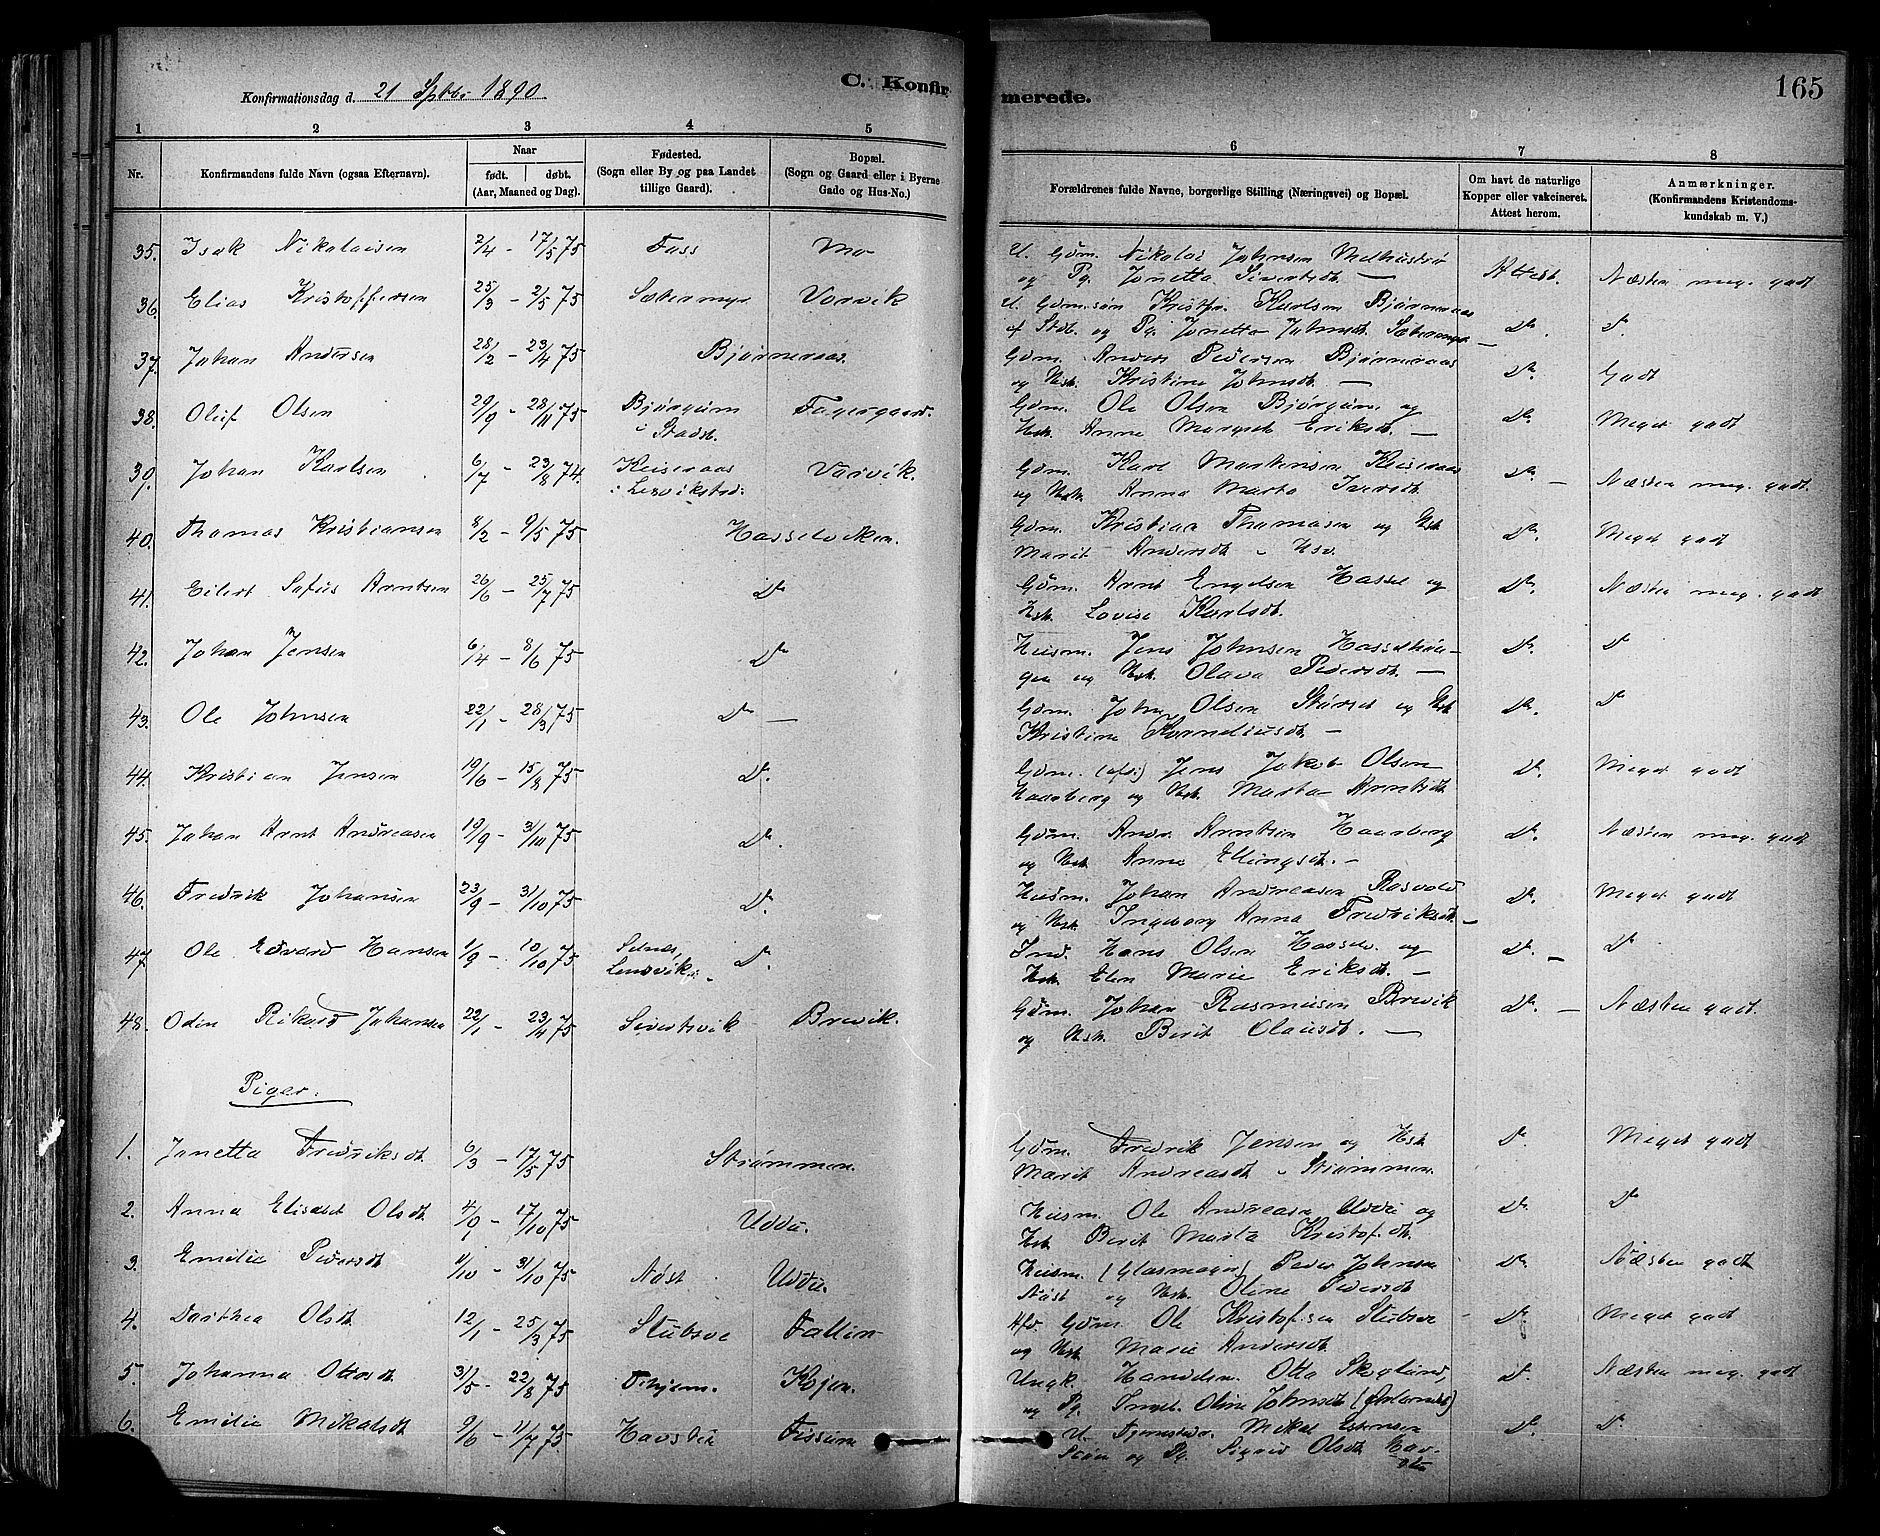 Konfirmationsdag d. 21 Septbr 1890
C. Konfirmerede.
165
1 2 3 4 5 6 7 8
Nr. Konfirmandens fulde Navn (ogsaa Efternavn). Naar født. døbt. (Aar, Maaned og Dag). Fødested. (Sogn eller By og paa Landet tillige Gaard). Bopæl. (Sogn og Gaard eller i Byerne Gade og Hus-No.) Forældrenes fulde Navne, borgerlige Stilling (Næringsvei) og Bopæl. Om havt de naturlige Kopper eller vakcineret. Attest herom. Anmærkninger. (Konfirmandens Kristendomskundskab m. V.)
35. Isak Nikolaisen 2/4 - 17/5 75 Foss Mo U. Gdm. Nikolai Johnsen Melhustrø
og Pg. Jonetta Sivertsdt. — Attest. Næsten meg. godt
36. Elias Kristoffersen 25/3 - 2/5 75 Sætermyr Vorvik U. Gdm.søn Kristfr. Karlsen Bjørneraas
af Stdb. og Pg. Jonetta Johnsdt. Sætermyr — Do. Do
37. Johan Andersen 28/2 - 23/4 75 Bjørneraas. Gdm. Anders Pedersen Bjørneraas
og Hsk. Kristine Johnsdt. — Do. Godt
38. Oluf Olsen 29/9 - 28/11 75 Bjørgum i Stadsb. Fagergaard. Gdm. Ole Olsen Bjørgum og
Hsk. Anne Margret Eriksdt. — Do. Meget godt
39. Johan Karlsen 6/7 - 23/8 74. Keiseraas i Lensvikstrd. Vorvik. Gdm. Karl Martinsen Keiseraas
og Hsk. Anna Marta Iversdt. Do. — Næsten meg. godt.
40. Thomas Kristiansen 8/2 - 9/5 75 Hasselviken. Gdm. Kristian Thomasen og Hsk
Marit Andersdt. i Hsv. Do. Meget godt
41. Eilert Sofus Arntsen 26/6 - 25/7 75 Do Gdm. Arnt Engelsen Hassel og
Hsk. Lovise Karlsdt. Do. Næsten meg. godt
42. Johan Jensen 6/4 - 8/6 75 Do Husm. Jens Johnsen Hasselhaugen
og Hsk. Olava Pedersdt. — Do. Do
43. Ole Johnsen 22/1 - 28/3 75 Do — Gdm. John Olsen Størset og Hsk
Kristine Korneliusdt. — Do. Do
44. Kristian Jensen 19/6 - 15/8 75 Do. Gdm. (afsk.) Jens Jakob Olsen
Haarberg og Hsk. Marta Arntsdt. Do. Meget godt
45. Johan Arnt Andreasen 19/9 - 31/10 75 Do. Gdm. Andr. Arntsen Haarberg
og Hsk. Anne Ellingsdt. — Do. Næsten meg. godt
46. Fredrik Johansen 23/9 - 31/10 75 Do. Husm. Johan Andreasen Rosvold
og Hsk. Ingeborg Anna Fredriksdt. — Do. Meget godt
47. Ole Edvard Hansen 1/9 - 10/10 75 Selnes, Lensvik. Do. Ind. Hans Olsen Hasselv. og
Hsk. Elen Marie Eriksdt. — Do. — Do
48. Odin Rikard Johansen 22/1 - 23/4 75 Sivertsvik Brevik. Gdm. Johan Rasmusen Brevik
og Hsk. Berit Olausdt. — Do. — Næsten godt.
Piger.
1. Jonetta Fredriksdt. 6/3 - 17/5 75 Strømmen. Gdm. Fredrik Jensen og Hsk
Marit Andreasdt. i Strømmen. Do Meget godt
2. Anna Elisabet Olsdt. 4/9 - 17/10 75 Uddu. Husm. Ole Andreasen Uddu og
Hsk. Berit Marta Kristofdt. Do. Do
3. Emilie Pedersdt 1/10 - 31/10 75 Nøst Uddu. Husm. (Glasmager) Peder Johnsen
Nøst og Hsk. Oline Pedersdt Do. Næsten godt
4. Dorthea Olsdt. 12/1 - 25/3 75 Stubsve Fallin Afd. Gdm. Ole Kristofsen Stubsve
og Hsk Marie Andersdt. Do. Meget godt
5. Johanna Ottosdt 31/5 - 22/8 75 Kojen. Ungk. Handelsm. Otto Skoglund,
og Pg. Ingeb. Oline Johnsdt Do. Næsten meg. godt
6. Emilie Mikalsdt. 9/6 - 11/7 75 Havstein Fissum U. Mikal Estensen
og Pg. Sigrid Olsdt. Do. Do.